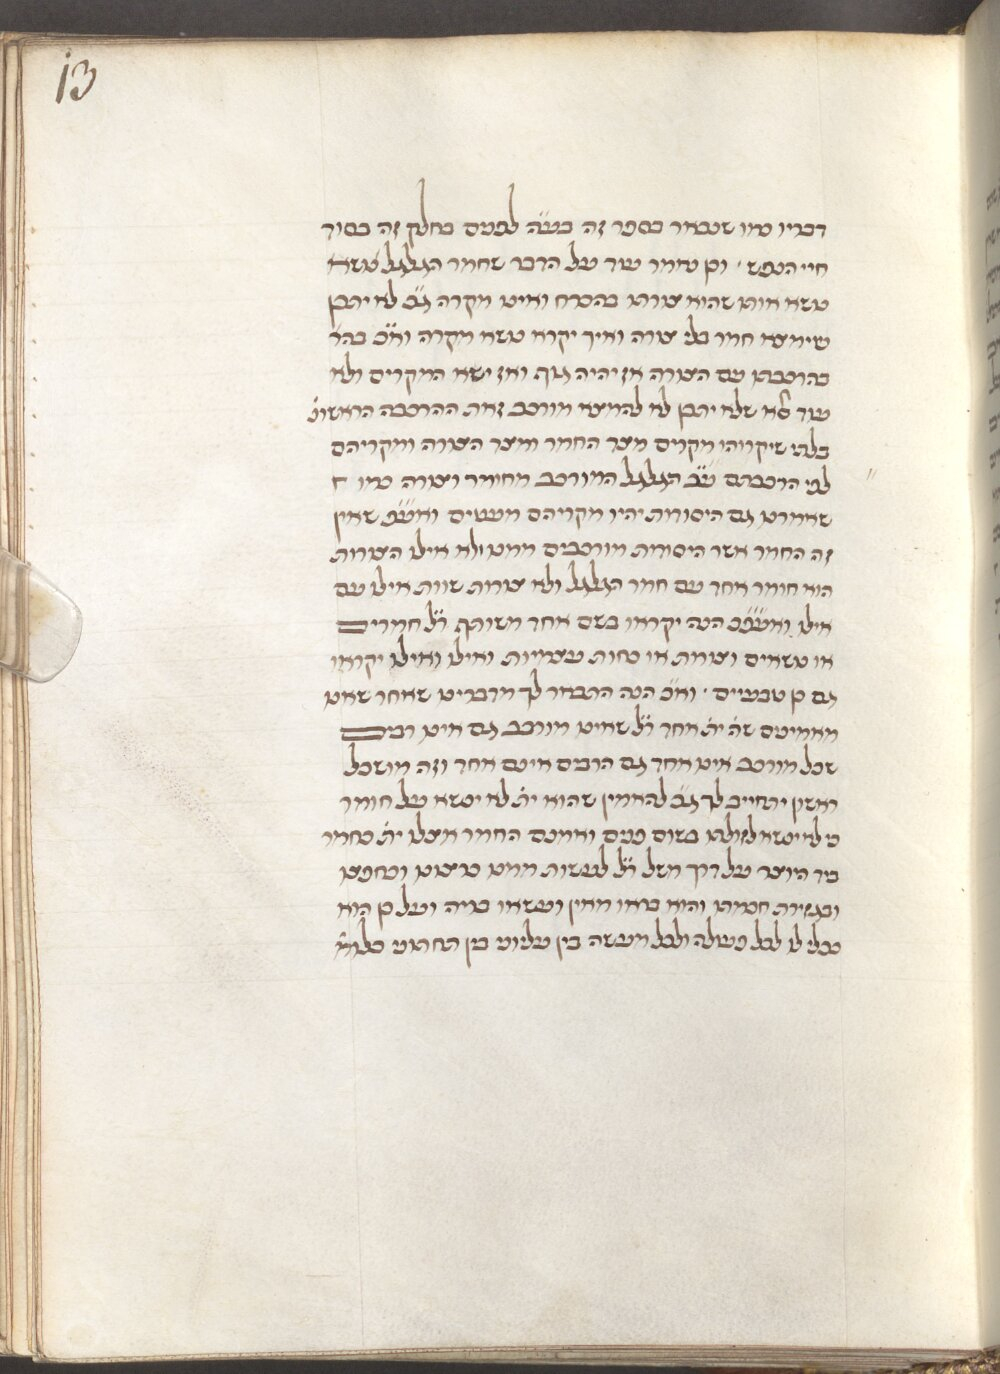 13
דבריו כמו שנבאר בספר זה בע״ה לפנים בחלק זה בסוד
חיי הנפש ׳ וכן נאמר עוד על הדבר שחמר הגלגל נושא
נושא אותו שהוא צורתו בהכרח ואינו מקרה ג״כ לא יתכן
שימצא חמר בלי צורה ואיך יקרא נושא מקרה וא״כ בהר׳
בהרכבתו עם הצורה אז יהיה גוף ואז ישא המקרים ולא
עוד אלא שלא יתכן לא להמצא מורכב זאת ההרכבה הראשונ׳
בלתי שיקרוהו מקרים מצד החמר ומצד הצורה ומקריהם
לפי הרכבתם ע״כ הגלגל המורכב מחומר וצורה כמו
שאמרנו גם היסודות יהיו מקריהם משנים ואע״פ שאין
זה החמר אשר היסודות מורכבים ממנו ולא אילו הצורות
הוא חומר אחד עם חמר הגלגל ולא צורות שוות אילו עם
אילו ואעפ״כ הנה יקראו בשם אחד משותף ר״ל חמרים
או נושאים וצורות או כחות עצמיות ואילו ואילו יקראו
גם כן טבעיים ׳ וא״כ הנה התבאר לך מדברינו שאחר שאנו
מאמינים שה׳ ית׳ אחד ר״ל שאינו מורכב גם אינו רבים
שכל מורכב אינו אחד גם הרבים אינם אחד וזה מושכל
ראשון יתחייב לך ג״כ להאמין שהוא ית׳ לא ינשא על חומר
כי לא ינשא לזולתו בשום פנים ואמנם החמר אצלו ית׳ כחמר
ביד היוצר על דרך משל ר״ל לעשות ממנו כרצונו וכחפצו
ובגזירת חכמתו והוא בראו מאין ועשאו בריה ועל כן הוא
ככלי לו לכל פעולה ולכל מעשה בין עליוני בין תחתוני